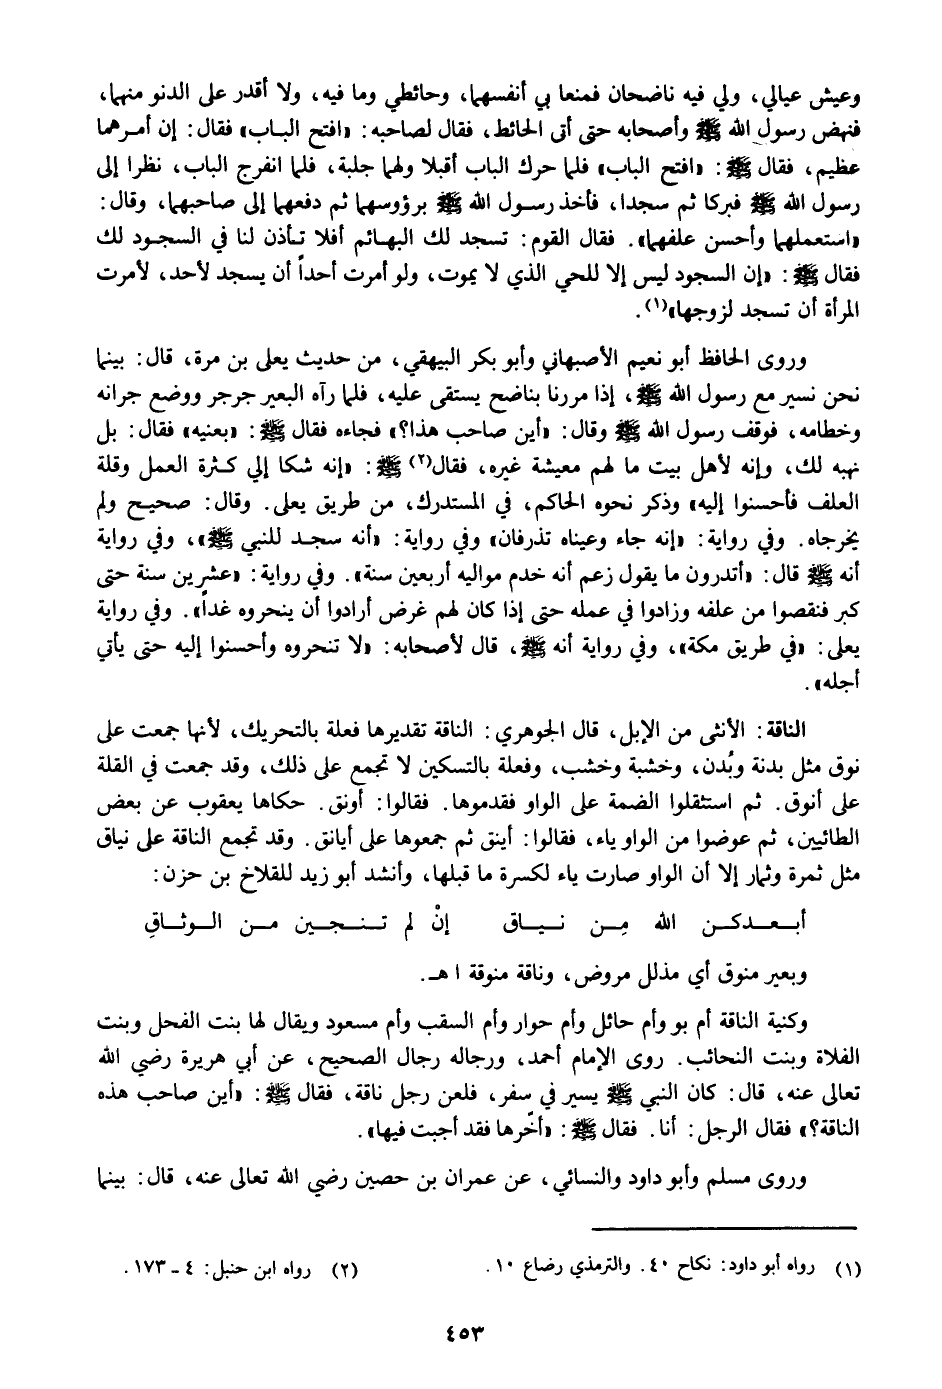 وعيش عيالي، ولي فيه ناضحان فمنعا بي أنفسهما، وحائطي وما فيه، ولا أقدر على الدنو منهما،
فنهض رسول الله ﷺ وأصحابه حتى أتى الحائط، فقال لصاحبه: «افتح الباب» فقال: إن أمرهما
عظيم، فقال ﷺ: «افتح الباب» فلما حرك الباب أقبلا ولهما جلبة، فلما انفرج الباب، نظرا إلى
رسول الله ﷺ فبركا ثم سجدا، فأخذ رسول الله ﷺ برؤوسهما ثم دفعهما إلى صاحبهما، وقال:
«استعملهما وأحسن علفهما». فقال القوم: تسجد لك البهائم أفلا تأذن لنا في السجود لك
فقال ﷺ: «إن السجود ليس إلا للحي الذي لا يموت، ولو أمرت أحداً أن يسجد لأحد، لأمرت
المرأة أن تسجد لزوجها»(١).
وروى الحافظ أبو نعيم الأصبهاني وأبو بكر البيهقي، من حديث يعلى بن مرة، قال: بينما
نحن نسير مع رسول الله ﷺ، إذا مررنا بناضح يستقى عليه، فلما رآه البعير جرجر ووضع جرانه
وخطامه، فوقف رسول الله ﷺ وقال: «أين صاحب هذا؟» فجاءه فقال ﷺ: «بعنيه» فقال: بل
نهبه لك، وإنه لأهل بيت ما لهم معيشة غيره، فقال(٢) ﷺ: «إنه شكا إلي كثرة العمل وقلة
العلف فأحسنوا إليه» وذكر نحوه الحاكم، في المستدرك، من طريق يعلى. وقال: صحيح ولم
يخرجاه. وفي رواية: «إنه جاء وعيناه تذرفان» وفي رواية: «أنه سجد للنبي ﷺ»، وفي رواية
أنه ﷺ قال: «أتدرون ما يقول زعم أنه خدم مواليه أربعين سنة». وفي رواية: «عشرين سنة حتى
كبر فنقصوا من علفه وزادوا في عمله حتى إذا كان لهم غرض أرادوا أن ينحروه غداً». وفي رواية
يعلى: «في طريق مكة»، وفي رواية أنه ﷺ، قال لأصحابه: «لا تنحروه وأحسنوا إليه حتى يأتي
أجله».
الناقة: الأنثى من الإبل، قال الجوهري: الناقة تقديرها فعلة بالتحريك، لأنها جمعت على
نوق مثل بدنة وبُدن، وخشبة وخشب، وفعلة بالتسكين لا تجمع على ذلك، وقد جمعت في القلة
على أنوق. ثم استثقلوا الضمة على الواو فقدموها. فقالوا: أونق. حكاها يعقوب عن بعض
الطائيين، ثم عوضوا من الواو ياء، فقالوا: أينق ثم جمعوها على أيانق. وقد تجمع الناقة على نياق
مثل ثمرة وثمار إلا أن الواو صارت ياء لكسرة ما قبلها، وأنشد أبو زيد للقلاخ بن حزن:
أبـعـدكـن الله مِـن نـيـاق إنْ لم تـنـجـين مـن الـوثـاقِ
وبعير منوق أي مذلل مروض، وناقة منوقة ا هـ.
وكنية الناقة أم بو وأم حائل وأم حوار وأم السقب وأم مسعود ويقال لها بنت الفحل وبنت
الفلاة وبنت النحائب. روى الإمام أحمد، ورجاله رجال الصحيح، عن أبي هريرة رضي الله
تعالى عنه، قال: كان النبي ﷺ يسير في سفر، فلعن رجل ناقة، فقال ﷺ: «أين صاحب هذه
الناقة؟» فقال الرجل: أنا. فقال ﷺ: «أخّرها فقد أجبت فيها».
وروى مسلم وأبو داود والنسائي، عن عمران بن حصين رضي الله تعالى عنه، قال: بينما
(١) رواه أبو داود: نكاح ٤٠. والترمذي رضاع ١٠. (٢) رواه ابن حنبل: ٤ - ١٧٣.
٤٥٣